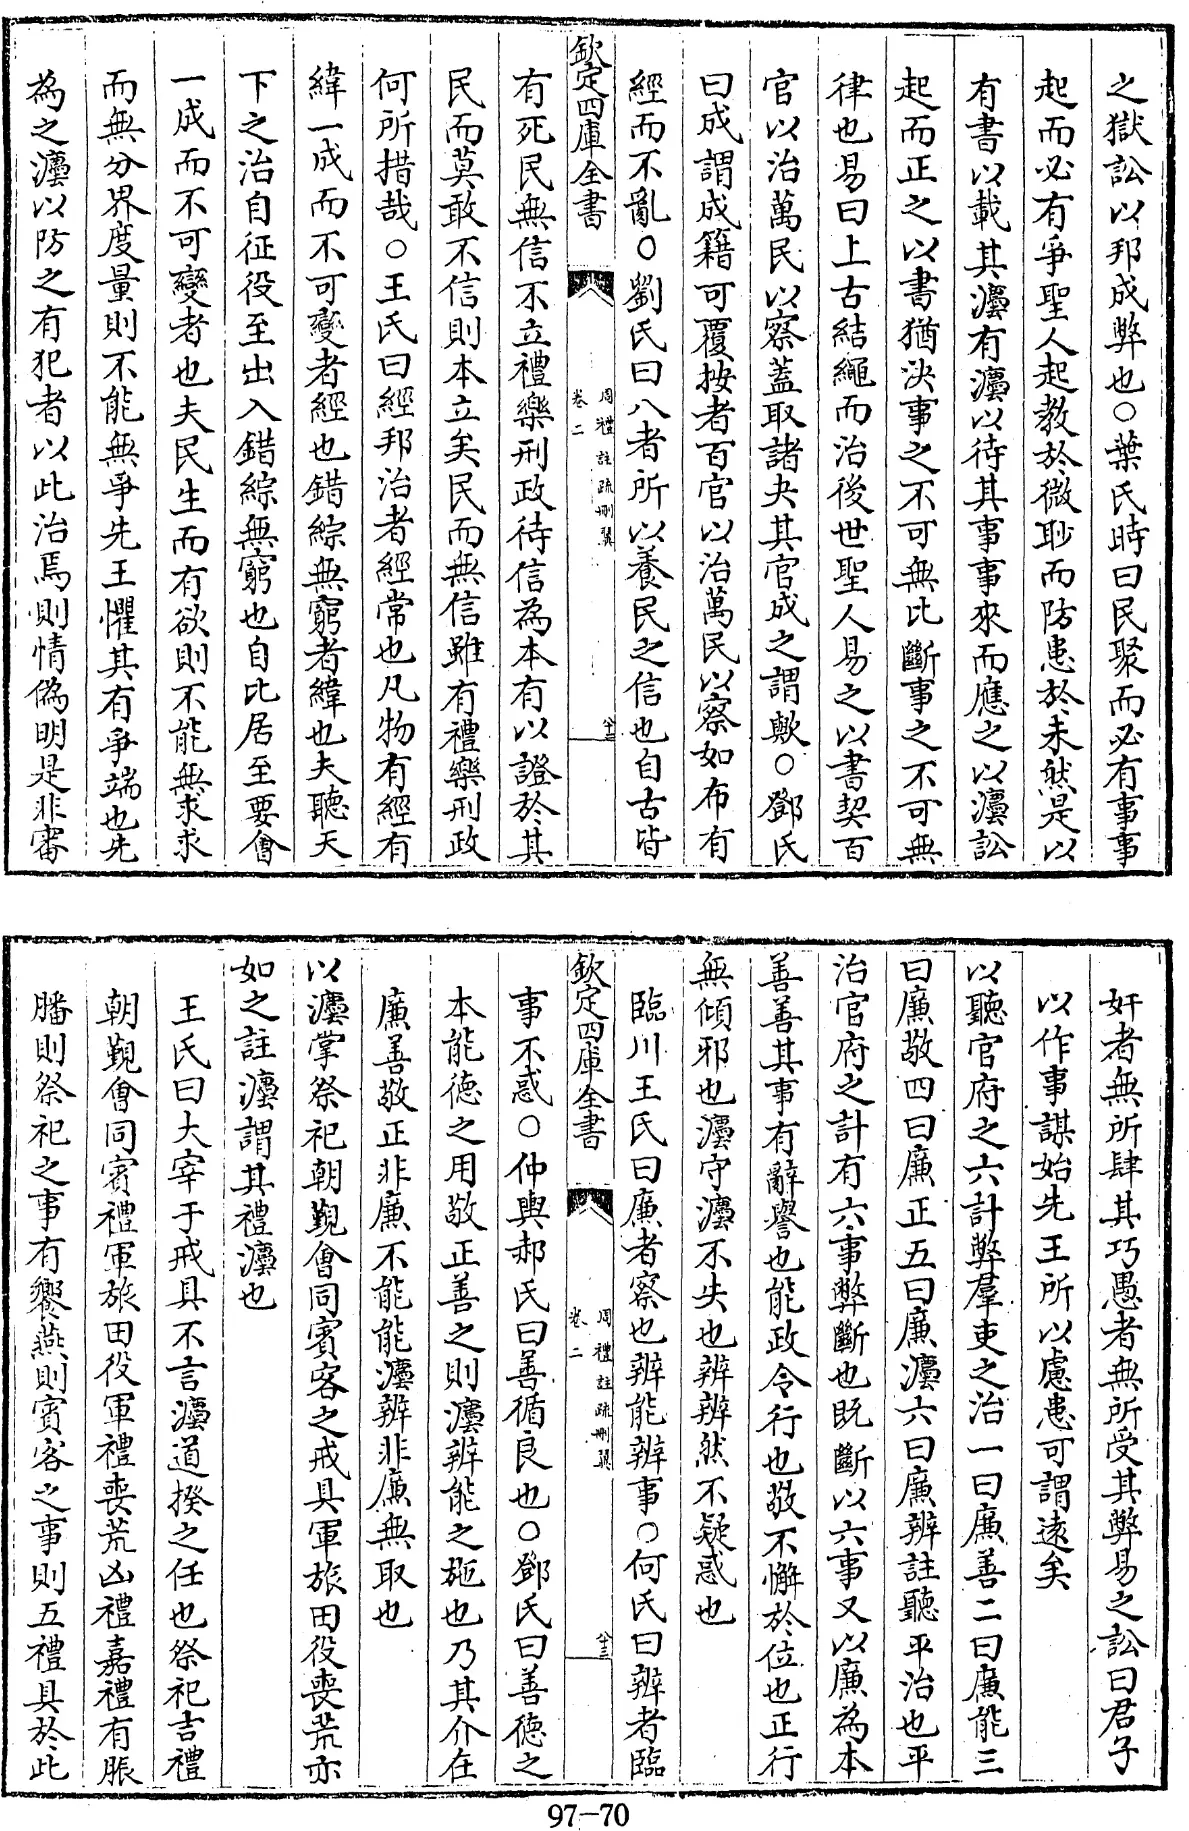 之獄訟以邦成弊也○葉氏時曰民聚而必有事事
起而必有爭聖人起教於微眇而防患於未然是以
有書以載其灋有灋以待其事事來而應之以灋訟
起而正之以書猶决事之不可無比斷事之不可無
律也易曰上古結繩而治後世聖人易之以書契百
官以治萬民以察蓋取諸夬其官成之謂歟○鄧氏
曰成謂成籍可覆按者百官以治萬民以察如布有
經而不亂○劉氏曰八者所以養民之信也自古皆
欽定四庫全書
周禮註疏刪翼
卷二
有死民無信不立禮樂刑政待信為本有以證於其
民而莫敢不信則本立矣民而無信雖有禮樂刑政
何所措哉○王氏曰經邦治者經常也凡物有經有
緯一成而不可變者經也錯綜無窮者緯也夫聽天
下之治自征役至出入錯綜無窮也自比居至要會
一成而不可變者也夫民生而有欲則不能無求求
而無分界度量則不能無爭先王懼其有爭端也先
為之灋以防之有犯者以此治焉則情偽明是非審
奸者無所肆其巧愚者無所受其弊易之訟曰君子
以作事謀始先王所以慮患可謂遠矣
以聽官府之六計弊羣吏之治一曰廉善二曰廉能三
曰廉敬四曰廉正五曰廉灋六曰廉辨註聽平治也平
治官府之計有六事弊斷也既斷以六事又以廉為本
善善其事有辭譽也能政令行也敬不懈於位也正行
無傾邪也灋守灋不失也辨辨然不疑惑也
臨川王氏曰廉者察也辨能辨事○何氏曰辨者臨
欽定四庫全書
周禮註疏刪翼
卷二
事不惑○仲輿郝氏曰善循良也○鄧氏曰善德之
本能德之用敬正善之則灋辨能之施也乃其介在
廉善敬正非廉不能能灋辨非廉無取也
以灋掌祭祀朝覲會同賓客之戒具軍旅田役喪荒亦
如之註灋謂其禮灋也
王氏曰大宰于戒具不言灋道揆之任也祭祀吉禮
朝覲會同賓禮軍旅田役軍禮喪荒凶禮嘉禮有脤
膰則祭祀之事有饗燕則賓客之事則五禮具於此
97-70